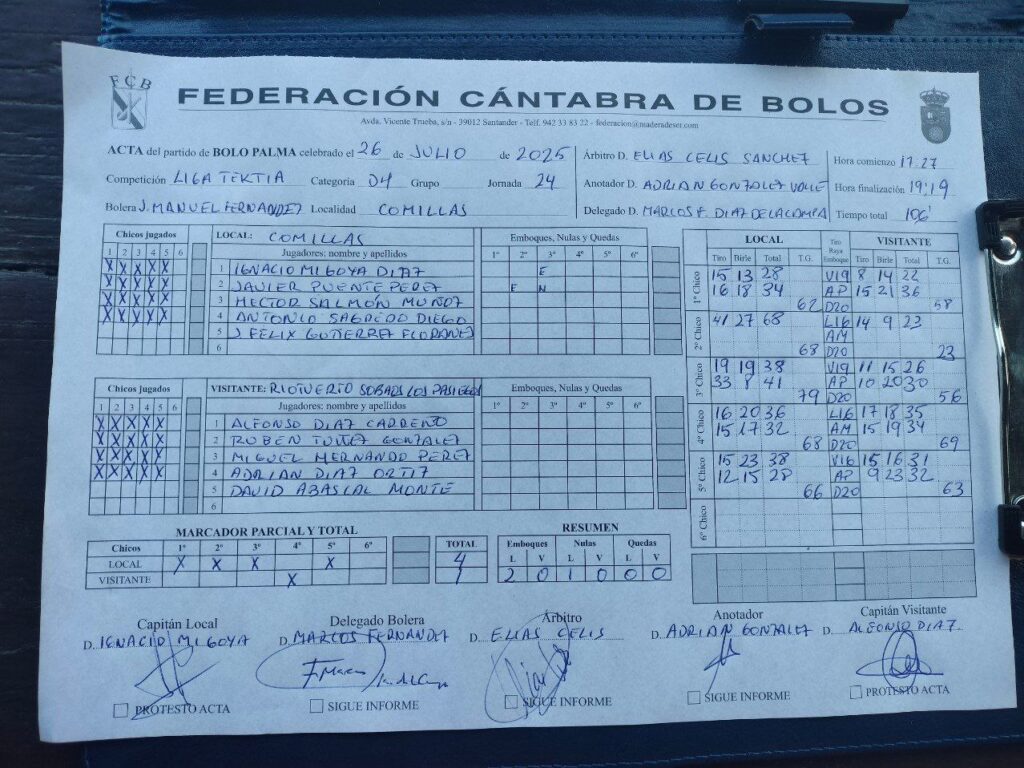 FCB
FEDERACIÓN CÁNTABRA DE BOLOS
Avda. Vicente Trueba, s/n - 39012 Santander - Telf. 942 33 83 22 - federacion@maderadeser.com
ACTA del partido de BOLO PALMA celebrado el 26 de JULIO de 2025
Competición LIGA TERTIA Categoria D4 Grupo Jornada 24
Bolera J. MANUEL FERNANDEZ Localidad COMILLAS
Árbitro D. ELIAS CELIS SANCHEZ
Anotador D. ADRIAN GONZALEZ VALLE
Delegado D. MARCOS F. DIAZ DE LA CAMPA
Hora comienzo 17:27
Hora finalización 19:19
Tiempo total 106'
Chicos jugados LOCAL: COMILLAS Emboques, Nulas y Quedas
1 2 3 4 5 6 Jugadores: nombre y apellidos 1º 2º 3º 4º 5º 6º
X X X X X 1 IGNACIO MIGOYA DIAZ E
X X X X X 2 JAVIER PUENTE PEREZ E N
X X X X X 3 HECTOR SALMÓN MUÑOZ
X X X X X 4 ANTONIO SAGREDO DIEGO
5 J. FELIX GUTIERREZ FLORANES
6
Chicos jugados VISITANTE: RIOTUERTO SOBAOS LOS PASIEGOS Emboques, Nulas y Quedas
1 2 3 4 5 6 Jugadores: nombre y apellidos 1º 2º 3º 4º 5º 6º
X X X X X 1 ALFONSO DIAZ CARREÑO
X X X X X 2 RUBEN TUÑEZ GONZALEZ
X X X X X 3 MIGUEL HERNANDO PEREZ
X X X X X 4 ADRIAN DIAZ ORTIZ
5 DAVID ABASCAL MONTE
6
LOCAL Tiro Raya Emboque VISITANTE
Tiro Birle Total T.G. Tiro Birle Total T.G.
1º Chico 15 13 28 V19 8 14 22
16 18 34 AP 15 21 36
62 D20 58
2º Chico 41 27 68 L16 14 9 23
AM
68 D20 23
3º Chico 19 19 38 V19 11 15 26
33 8 41 AP 10 20 30
79 D20 56
4º Chico 16 20 36 L16 17 18 35
15 17 32 AM 15 19 34
68 D20 69
5º Chico 15 23 38 V16 15 16 31
12 15 28 AP 9 23 32
66 D20 63
6º Chico
MARCADOR PARCIAL Y TOTAL
Chicos 1º 2º 3º 4º 5º 6º TOTAL
LOCAL X X X X 4
VISITANTE X 1
RESUMEN
Emboques Nulas Quedas
L V L V L V
2 0 1 0 0 0
Capitán Local Delegado Bolera Árbitro Anotador Capitán Visitante
D. IGNACIO MIGOYA D. MARCOS FERNANDEZ D. ELIAS CELIS D. ADRIAN GONZALEZ D. ALFONSO DIAZ
PROTESTO ACTA SIGUE INFORME SIGUE INFORME SIGUE INFORME PROTESTO ACTA